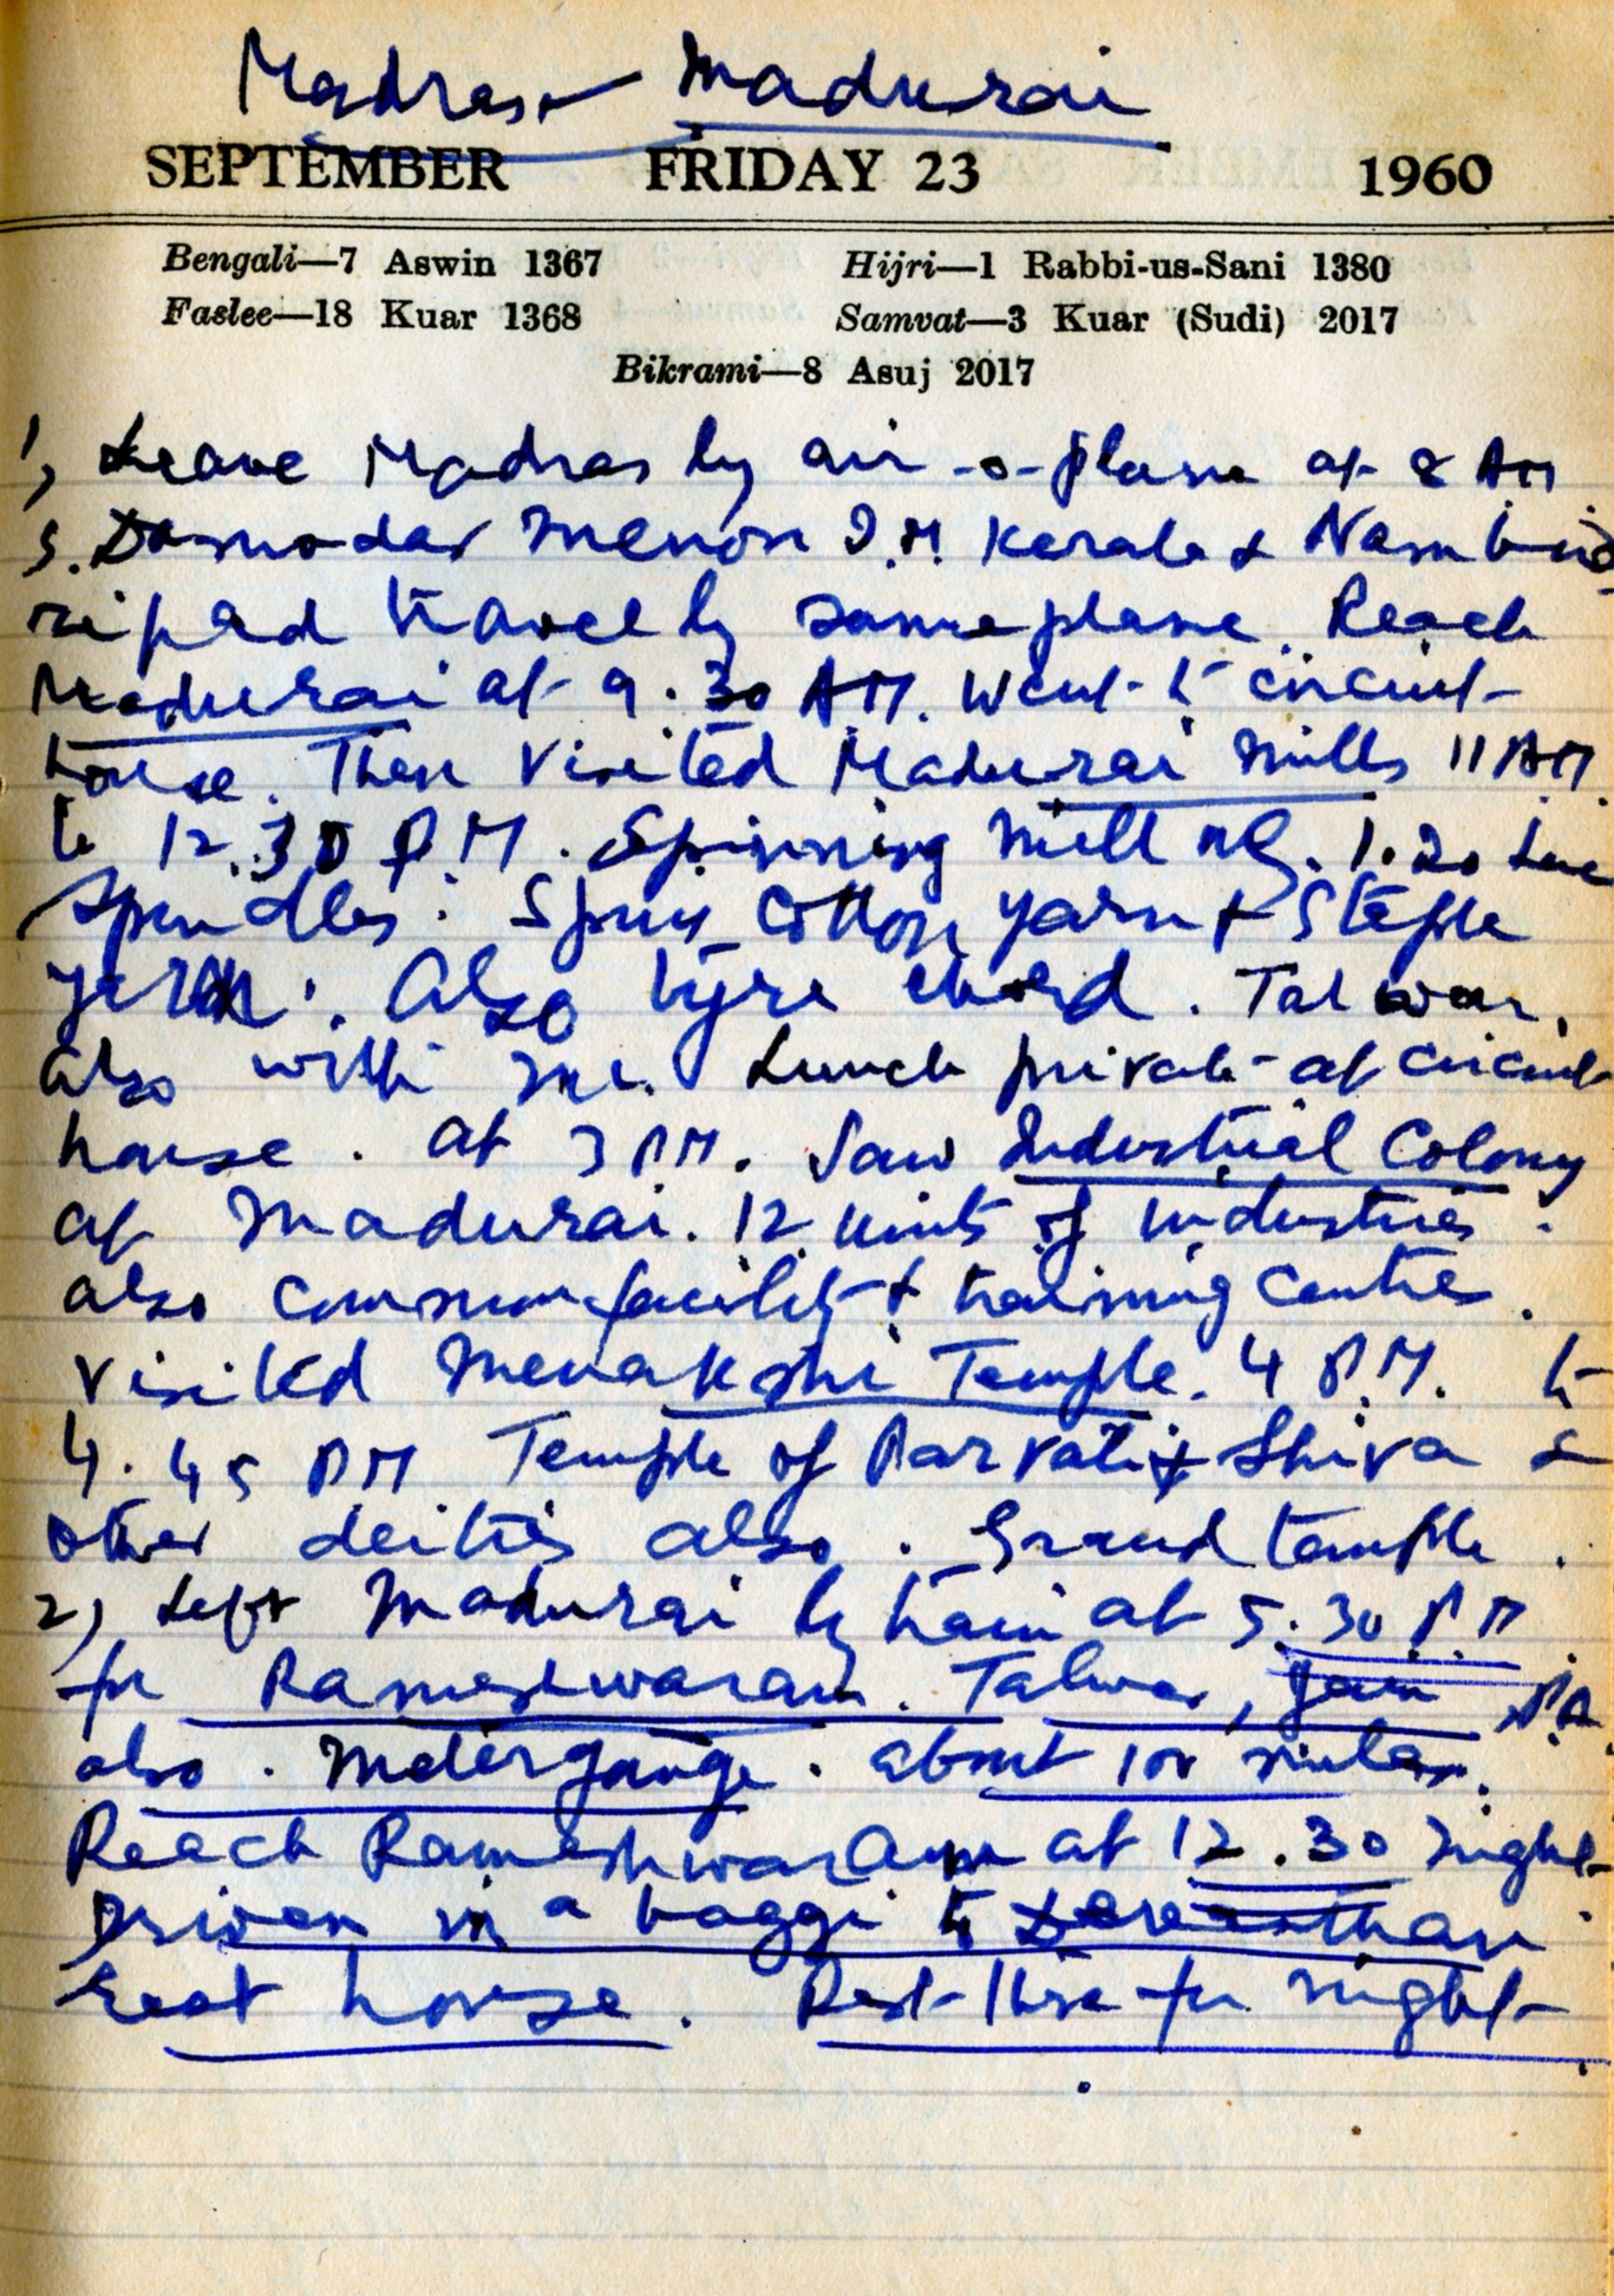 Madras - Madurai
SEPTEMBER FRIDAY 23 1960
Bengali—7 Aswin 1367 Hijri—1 Rabbi-us-Sani 1380
Faslee—18 Kuar 1368 Samvat—3 Kuar (Sudi) 2017
Bikrami—8 Asuj 2017
1) Leave Madras by air-o-plane at 8 AM
S. Damodar Menon I.M. Kerala & Nambud
ripad travel by same plane. Reach
Madurai at 9.30 AM. Went to circuit
house. Then visited Madurai Mills 11 AM
to 12.30 P.M. Spinning Mill of 1.20 Lac
Spindles. Spins Cotton yarn & Staple
yarn. Also tyre chord. Talwar,
also with me. Lunch private at circuit
house. at 3 PM. Saw Industrial Colony
at Madurai. 12 units of industries.
also common facility & training centre.
Visited Menakshi Temple. 4 P.M. to
4.45 PM Temple of Parvati & Shiva &
other deities also. Grand temple.
2) Left Madurai by train at 5.30 P.M
for Rameshwaram. Talwar, Jain P.A.
also. Meter gauge. about 100 miles.
Reach Rameshwaram at 12.30 night
Driven in a baggi to Devasthan
Rest house. Rest there for night